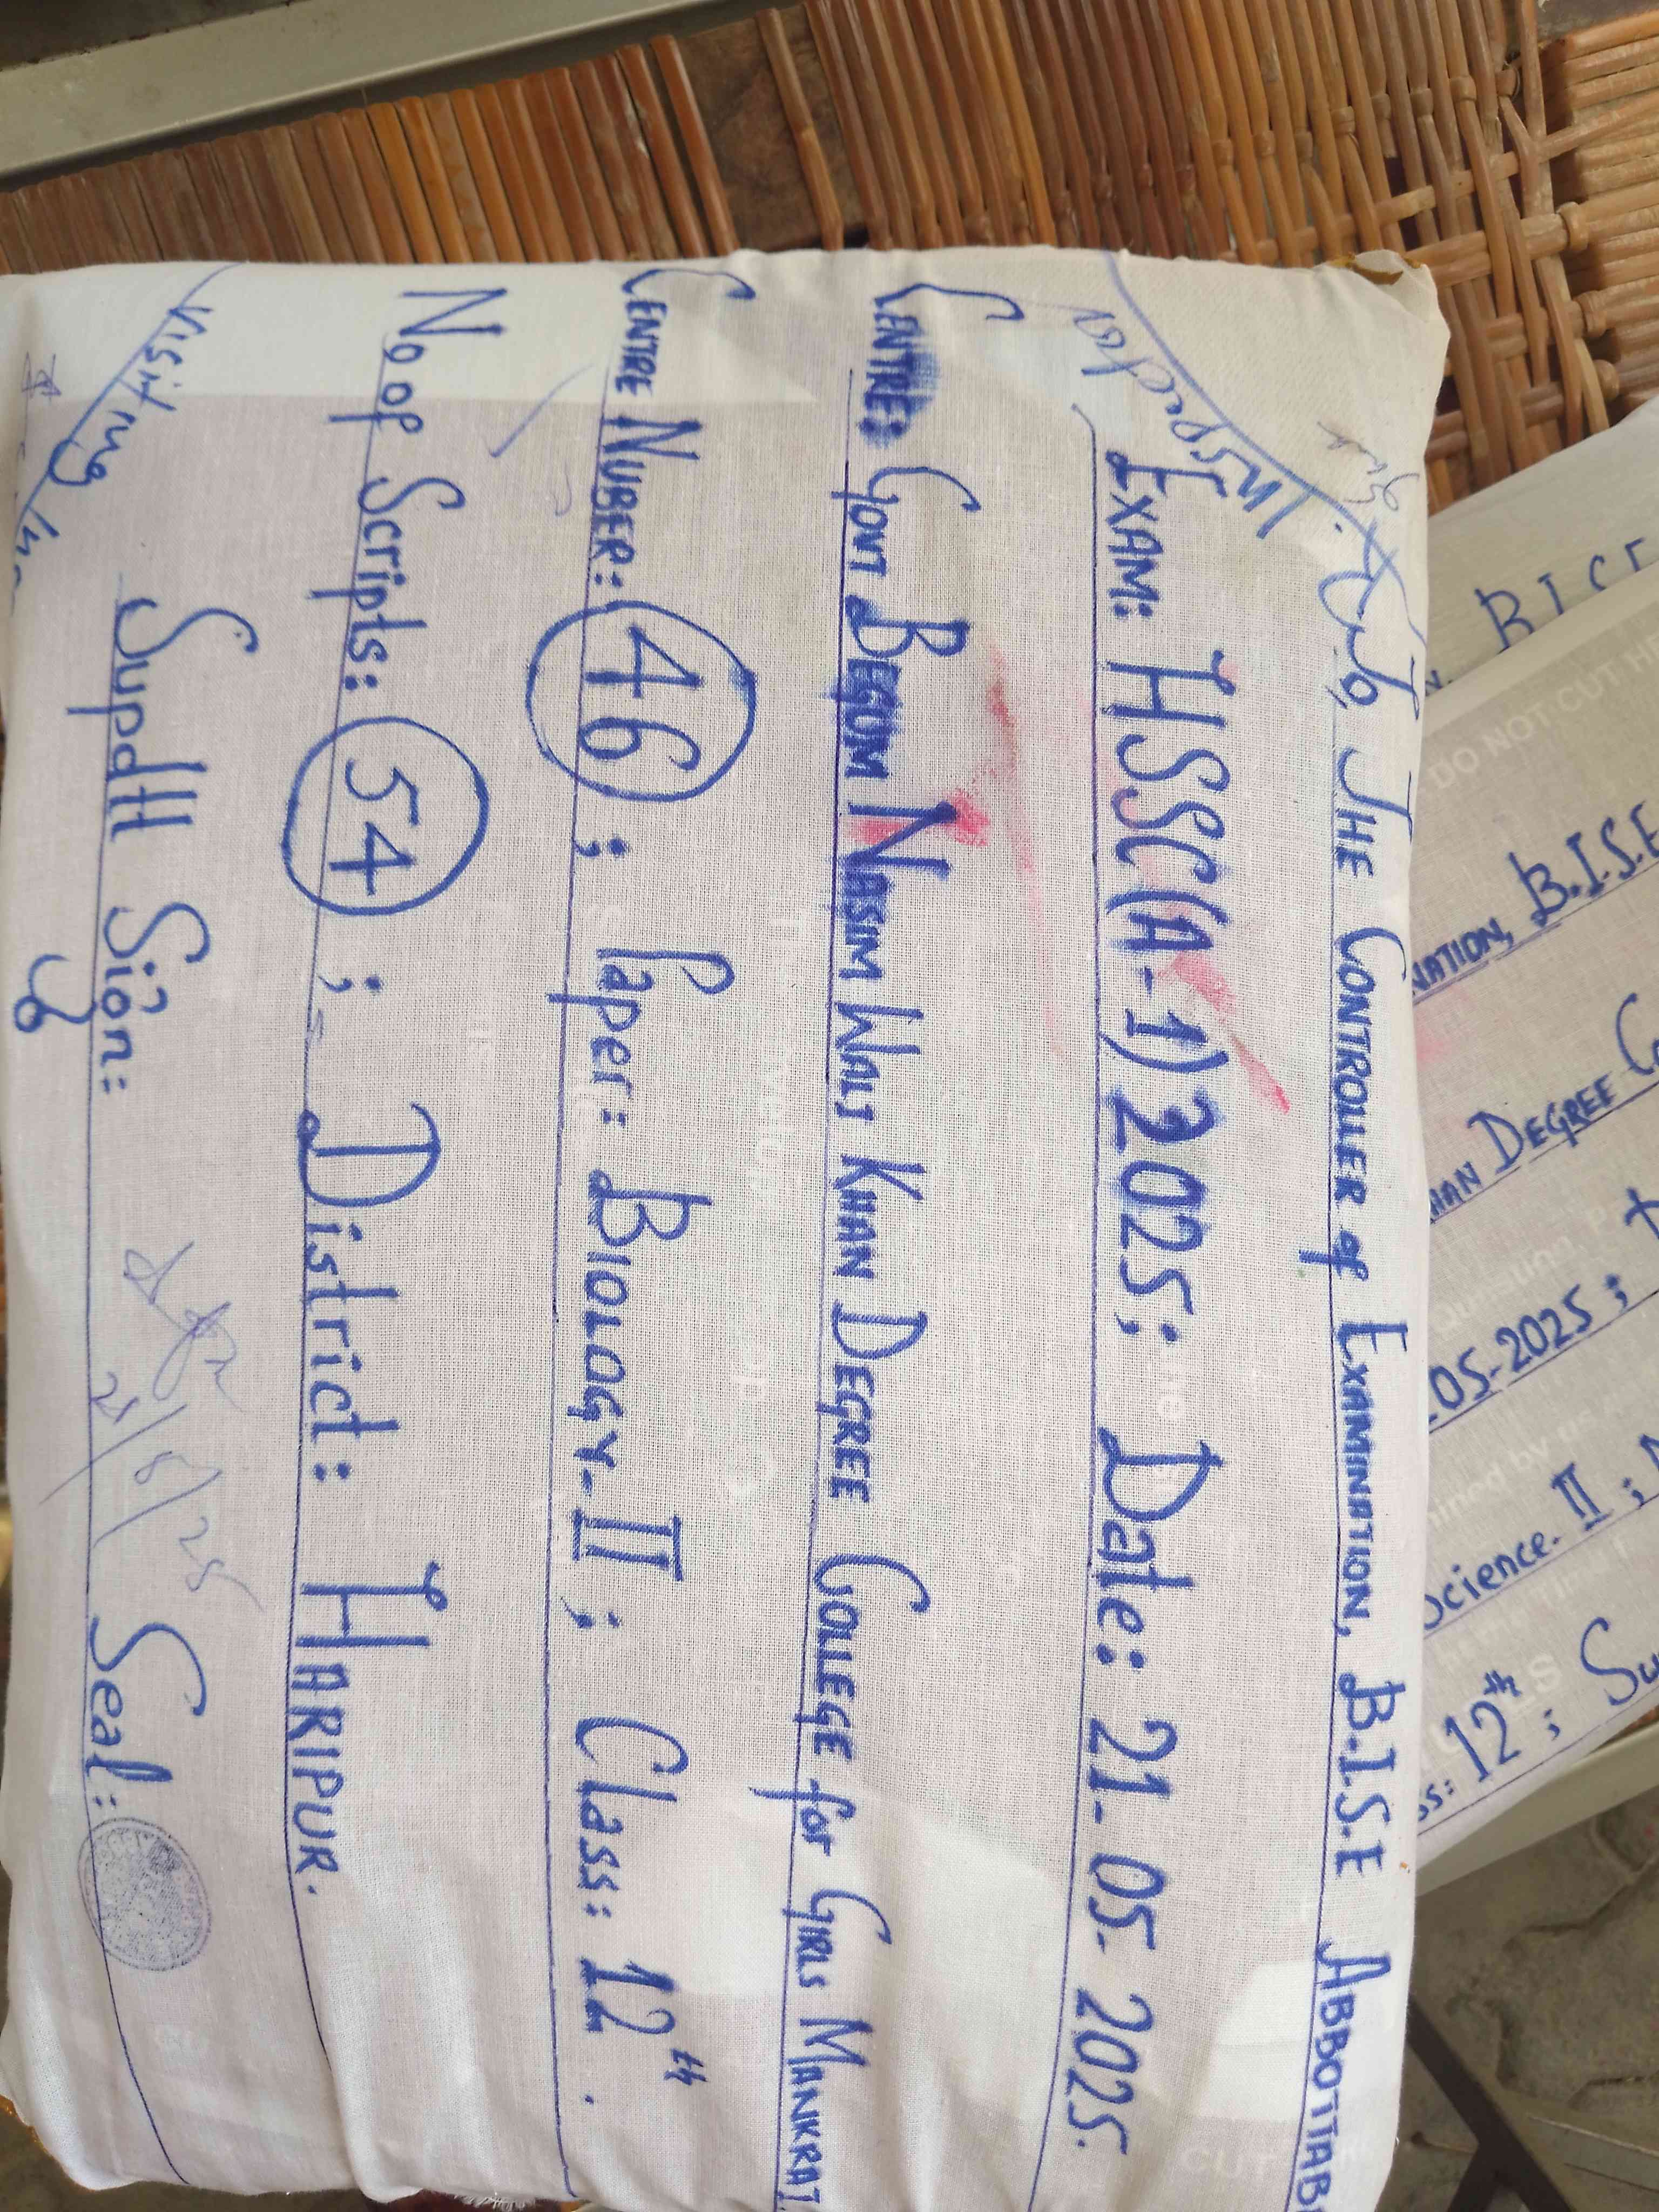 To, The Controller of Examination, B.I.S.E Abbottab
Exam: HSSC(A-1)2025; Date: 21-05-2025.
Centre: Govt Begum Nasim Wali Khan Degree College for Girls Mankrai.
Centre Nuber: 46 ; Paper: Biology-II ; Class: 12th.
No of Scripts: 54 ; District: Haripur.
Supdtt Sign: 21/5/25 Seal:
Inspector
Visiting In
B.I.S.E
DO NOT CUT HE
NATION, B.I.S.E
HAN DEGREE C
05-2025;
Science. II ;
ss: 12th ; Su